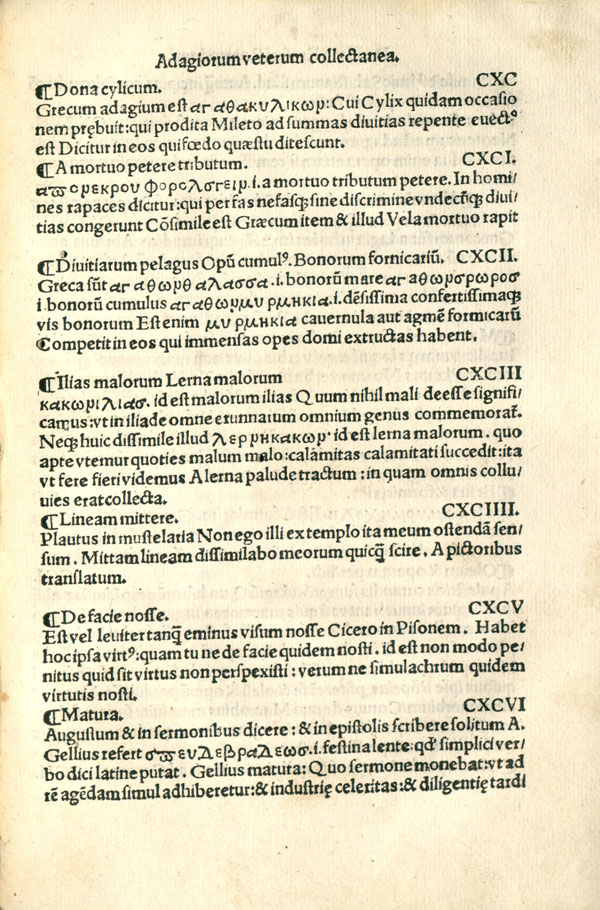 Adagiorum veterum collectanea.
¶Dona cylicum. CXC
Grecum adagium est αγαθακυλικωμ: Cui Cylix quidam occasio
nem prębuit: qui prodita Mileto ad summas diuitias repente euectꝰ
est Dicitur in eos qui fœdo quæstu ditescunt.
¶A mortuo petere tributum. CXCI.
απομεκρου φορολογτειμ .i. a mortuo tributum petere. In homi/
nes rapaces dicitur: qui per fas nefasq; sine discrimine vndecūq; diui/
tias congerunt Cōsimile est Græcum item & illud Vela mortuo rapit
¶Diuitiarum pelagus Opū cumulꝰ. Bonorum fornicariū. CXCII.
Greca sūt αγαθωμ θαλασσα .i. bonorū mare αγαθωμσρωροσ
i. bonorū cumulus αγαθωμμυρμηκια .i. dēsissima confertissimaq;
vis bonorum Est enim μυρμηκια cauernula aut agmē formicarū
Competit in eos qui immensas opes domi extructas habent.
¶Ilias malorum Lerna malorum CXCIII
κακωμιλιασ. id est malorum ilias Quum nihil mali deesse signifi/
camus: vt in iliade omne erunnarum omnium genus commemorat̄.
Neq; huic dissimile illud λερμηκακωμ. id est lerna malorum. quo
apte vtemur quoties malum malo: calamitas calamitati succedit: ita
vt fere fieri videmus A lerna palude tractum: in quam omnis collu/
uies erat collecta.
¶Lineam mittere. CXCIIII.
Plautus in mustelaria Non ego illi extemplo ita meum ostendā sen/
sum. Mittam lineam dissimilabo meorum quicq̄ scire. A pictoribus
translatum.
¶De facie nosse. CXCV
Est vel leuiter tanq̄ eminus visum nosse Cicero in Pisonem. Habet
hoc ipsa virtꝰ: quam tu ne de facie quidem nosti. id est non modo pe/
nitus quid sit virtus non perspexisti: verum ne simulachrum quidem
virtutis nosti.
¶Matura. CXCVI
Augustum & in sermonibus dicere: & in epistolis scribere solitum A.
Gellius refert σπευδεβραδεωσ .i. festina lente: qd̓ simplici ver/
bo dici latine putat. Gellius matura: Quo sermone monebat: vt ad
rē agēdam simul adhiberetur: & industrię celeritas: & diligentię tardi